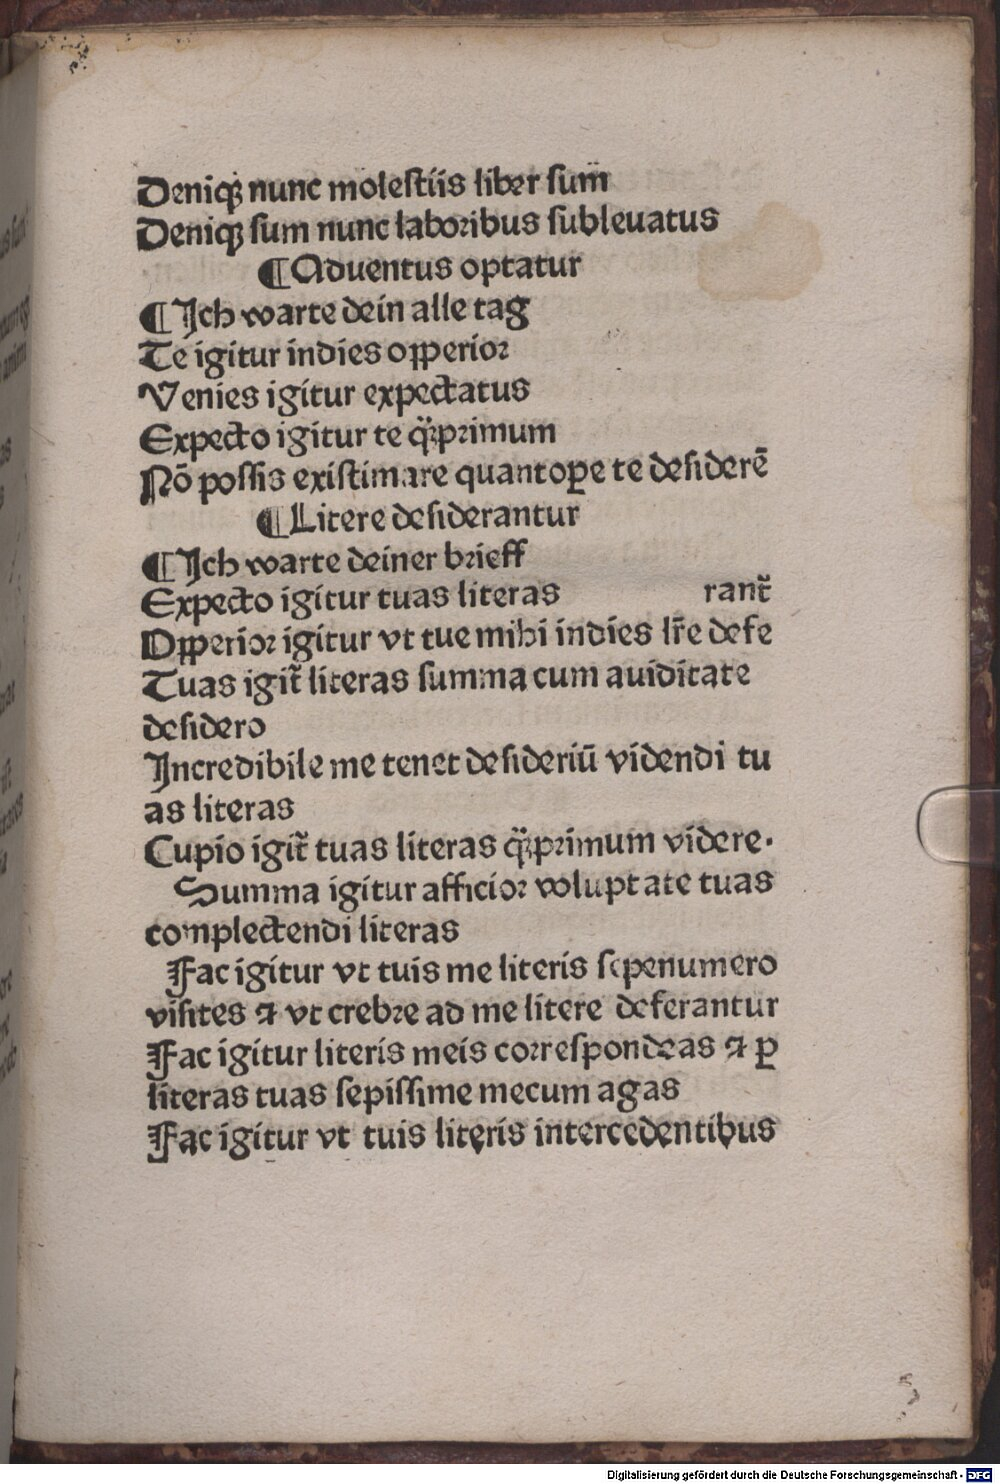 Deniqꝫ nunc molestiis liber sum
Deniqꝫ sum nunc laboribus subleuatus
¶Aduentus optatur
¶Ich warte dein alle tag
Te igitur indies oꝑperior
Venies igitur expectatus
Expecto igitur te q̈ꝫprimum
Nō possis existimare quantoꝑe te desiderē
¶Litere desiderantur
¶Ich warte deiner brieff
Expecto igitur tuas literas rant᷑
Oꝑperior igitur vt tue mihi indies lr̄e defe
Tuas igit᷑ literas summa cum auiditate
desidero
Incredibile me tenet desideriū videndi tu
as literas
Cupio igit᷑ tuas literas q̈ꝫprimum videre.
Summa igitur afficior voluptate tuas
complectendi literas
Fac igitur vt tuis me literis sepenumero
visites ⁊ vt crebre ad me litere deferantur
Fac igitur literis meis correspondeas ⁊ ꝑ
literas tuas sepissime mecum agas
Fac igitur vt tuis literis intercedentibus
Digitalisierung gefördert durch die Deutsche Forschungsgemeinschaft - DFG